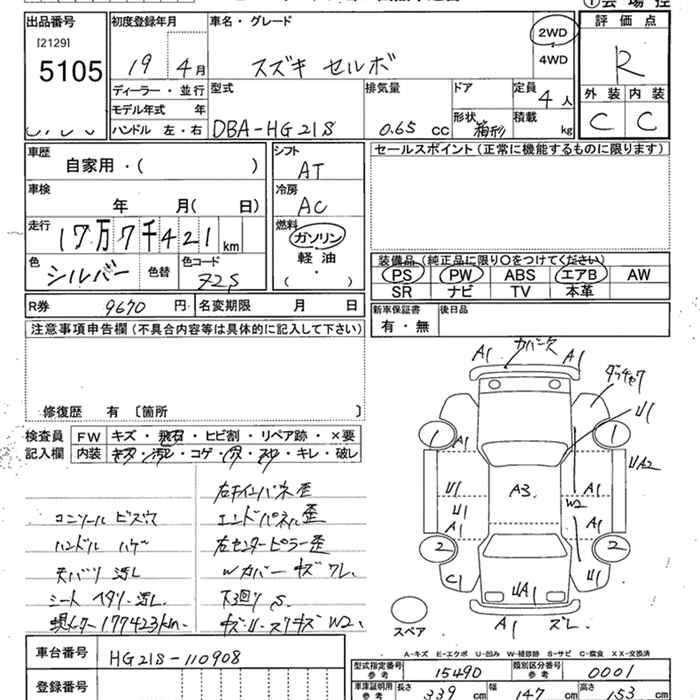 出品番号
[2129]
5105
初度登録年月
19 4月
ディーラー・並行
モデル年式 年
ハンドル 左・右
車名・グレード
スズキ セルボ
2WD
4WD
型式
DBA-HG21S
排気量
0.65 cc
ドア
形状
箱形
定員
4人
積載
kg
評価点
R
外装 内装
C C
車歴
自家用・( )
車検
年 月( 日)
走行
17万7千421km
色
シルバー
色替
色コード
Z2S
シフト
AT
冷房
AC
燃料
ガソリン
軽油
( )
セールスポイント(正常に機能するものに限ります)
装備品(純正品に限り○をつけてください)
PS PW ABS エアB AW
SR ナビ TV 本革
R券 9670 円
名変期限 月 日
新車保証書
有・無
後日品
注意事項申告欄(不具合内容等は具体的に記入して下さい)
修復歴 有 〔箇所 〕
検査員
記入欄
FW キズ・飛石・ヒビ割・リペア跡・×要
内装 キズ・汚レ・コゲ・穴・ ・キレ・破レ
コンソール ビス穴
ハンドル ハゲ
天バリ 汚レ
シート ヘタリ・汚レ
177423km
右インパネ歪
エンドパネル歪
右センターピラー歪
Wカバー キズ ワレ
下回り S
キズ・U・スリキズ W2
A1 A1
U1
1 A1 1
UA2
U1 A3 A1
W2
U1 A1 A1
2 2
C1 UA1 U1
A1 ズレ
スペア
A-キズ E-エクボ U-凹み W-補修跡 S-サビ C-腐食 XX-交換済
車台番号
HG21S-110908
登録番号
型式指定番号
参考
15490
類別区分番号
参考
0001
車庫証明用
参考
長さ 339 cm 幅 147 cm 高さ 153 cm